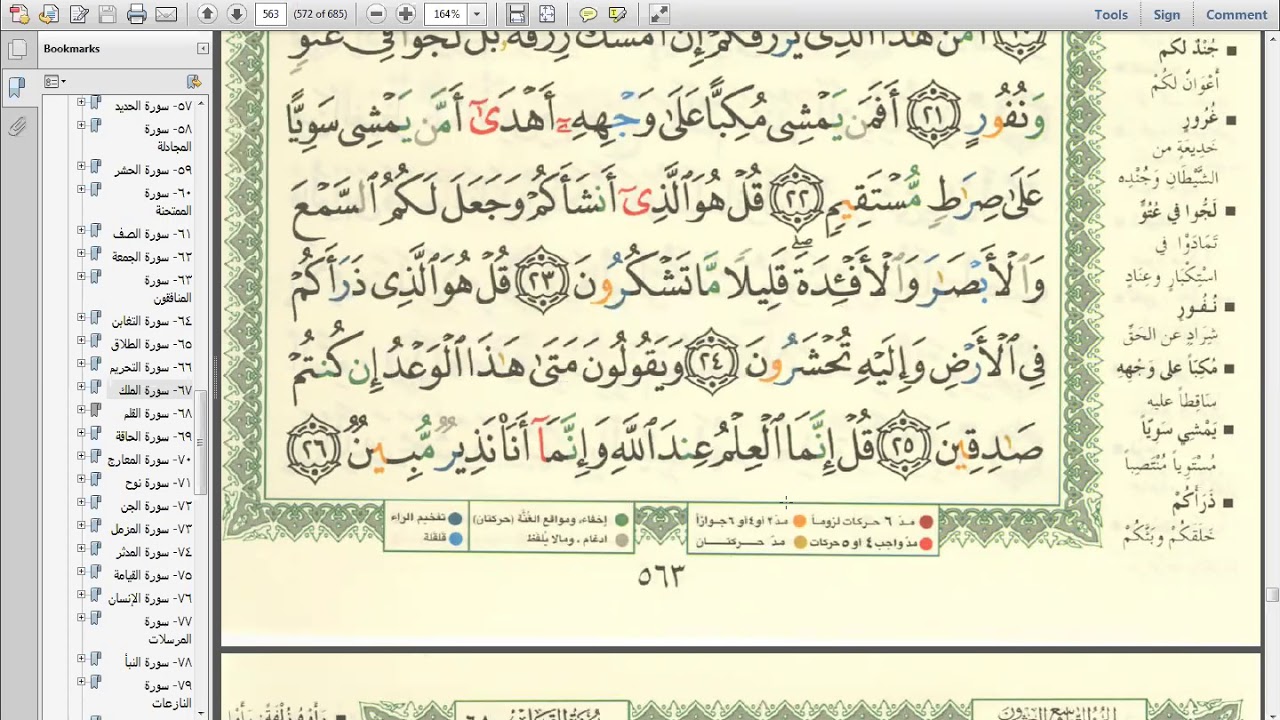 563
(572 of 685)
164%
Tools
Sign
Comment
Bookmarks
٥٧- سورة الحديد
٥٨- سورة
المجادلة
٥٩- سورة الحشر
٦٠- سورة
الممتحنة
٦١- سورة الصف
٦٢- سورة الجمعة
٦٣- سورة
المنافقون
٦٤- سورة التغابن
٦٥- سورة الطلاق
٦٦- سورة التحريم
٦٧- سورة الملك
٦٨- سورة القلم
٦٩- سورة الحاقة
٧٠- سورة المعارج
٧١- سورة نوح
٧٢- سورة الجن
٧٣- سورة المزمل
٧٤- سورة المدثر
٧٥- سورة القيامة
٧٦- سورة الإنسان
٧٧- سورة
المرسلات
٧٨- سورة النبأ
٧٩- سورة
النازعات
أَمَّنْ هَٰذَا ٱلَّذِى يَرْزُقُكُمْ إِنْ أَمْسَكَ رِزْقَهُۥ بَل لَّجُّوا۟ فِى عُتُوٍّ
وَنُفُورٍ ٢١ أَفَمَن يَمْشِى مُكِبًّا عَلَىٰ وَجْهِهِۦٓ أَهْدَىٰٓ أَمَّن يَمْشِى سَوِيًّا
عَلَىٰ صِرَٰطٍ مُّسْتَقِيمٍ ٢٢ قُلْ هُوَ ٱلَّذِىٓ أَنشَأَكُمْ وَجَعَلَ لَكُمُ ٱلسَّمْعَ
وَٱلْأَبْصَٰرَ وَٱلْأَفْـِٔدَةَ ۖ قَلِيلًا مَّا تَشْكُرُونَ ٢٣ قُلْ هُوَ ٱلَّذِى ذَرَأَكُمْ
فِى ٱلْأَرْضِ وَإِلَيْهِ تُحْشَرُونَ ٢٤ وَيَقُولُونَ مَتَىٰ هَٰذَا ٱلْوَعْدُ إِن كُنتُمْ
صَٰدِقِينَ ٢٥ قُلْ إِنَّمَا ٱلْعِلْمُ عِندَ ٱللَّهِ وَإِنَّمَآ أَنَا۠ نَذِيرٌ مُّبِينٌ ٢٦
مدّ ٦ حركات لزوماً
مدّ ٢ أو ٤ أو ٦ جوازاً
مدّ واجب ٤ او ٥ حركات
مدّ حركتان
إخفاء، ومواقع الغُنَّة (حركتان)
ادغام، ومالا يُلفظ
تفخيم الراء
قلقلة
٥٦٣
جُنْدٌ لكم
أَعْوَانٌ لكُمْ
غُرُورٍ
خَدِيعَةٍ من
الشَّيْطَانِ وَجُنْدِه
لَجُّوا في عُتُوٍّ
تَمَادَوْا في
اسْتِكْبَارٍ وعِنَادٍ
نُفُورٍ
شِرَادٍ عن الحَقِّ
مُكِبّاً على وَجْهِهِ
سَاقِطاً عليه
يَمْشِي سَوِيّاً
مُسْتَوِياً مُنْتَصِباً
ذَرَأَكُمْ
خَلَقَكُمْ وَبَثَّكُمْ